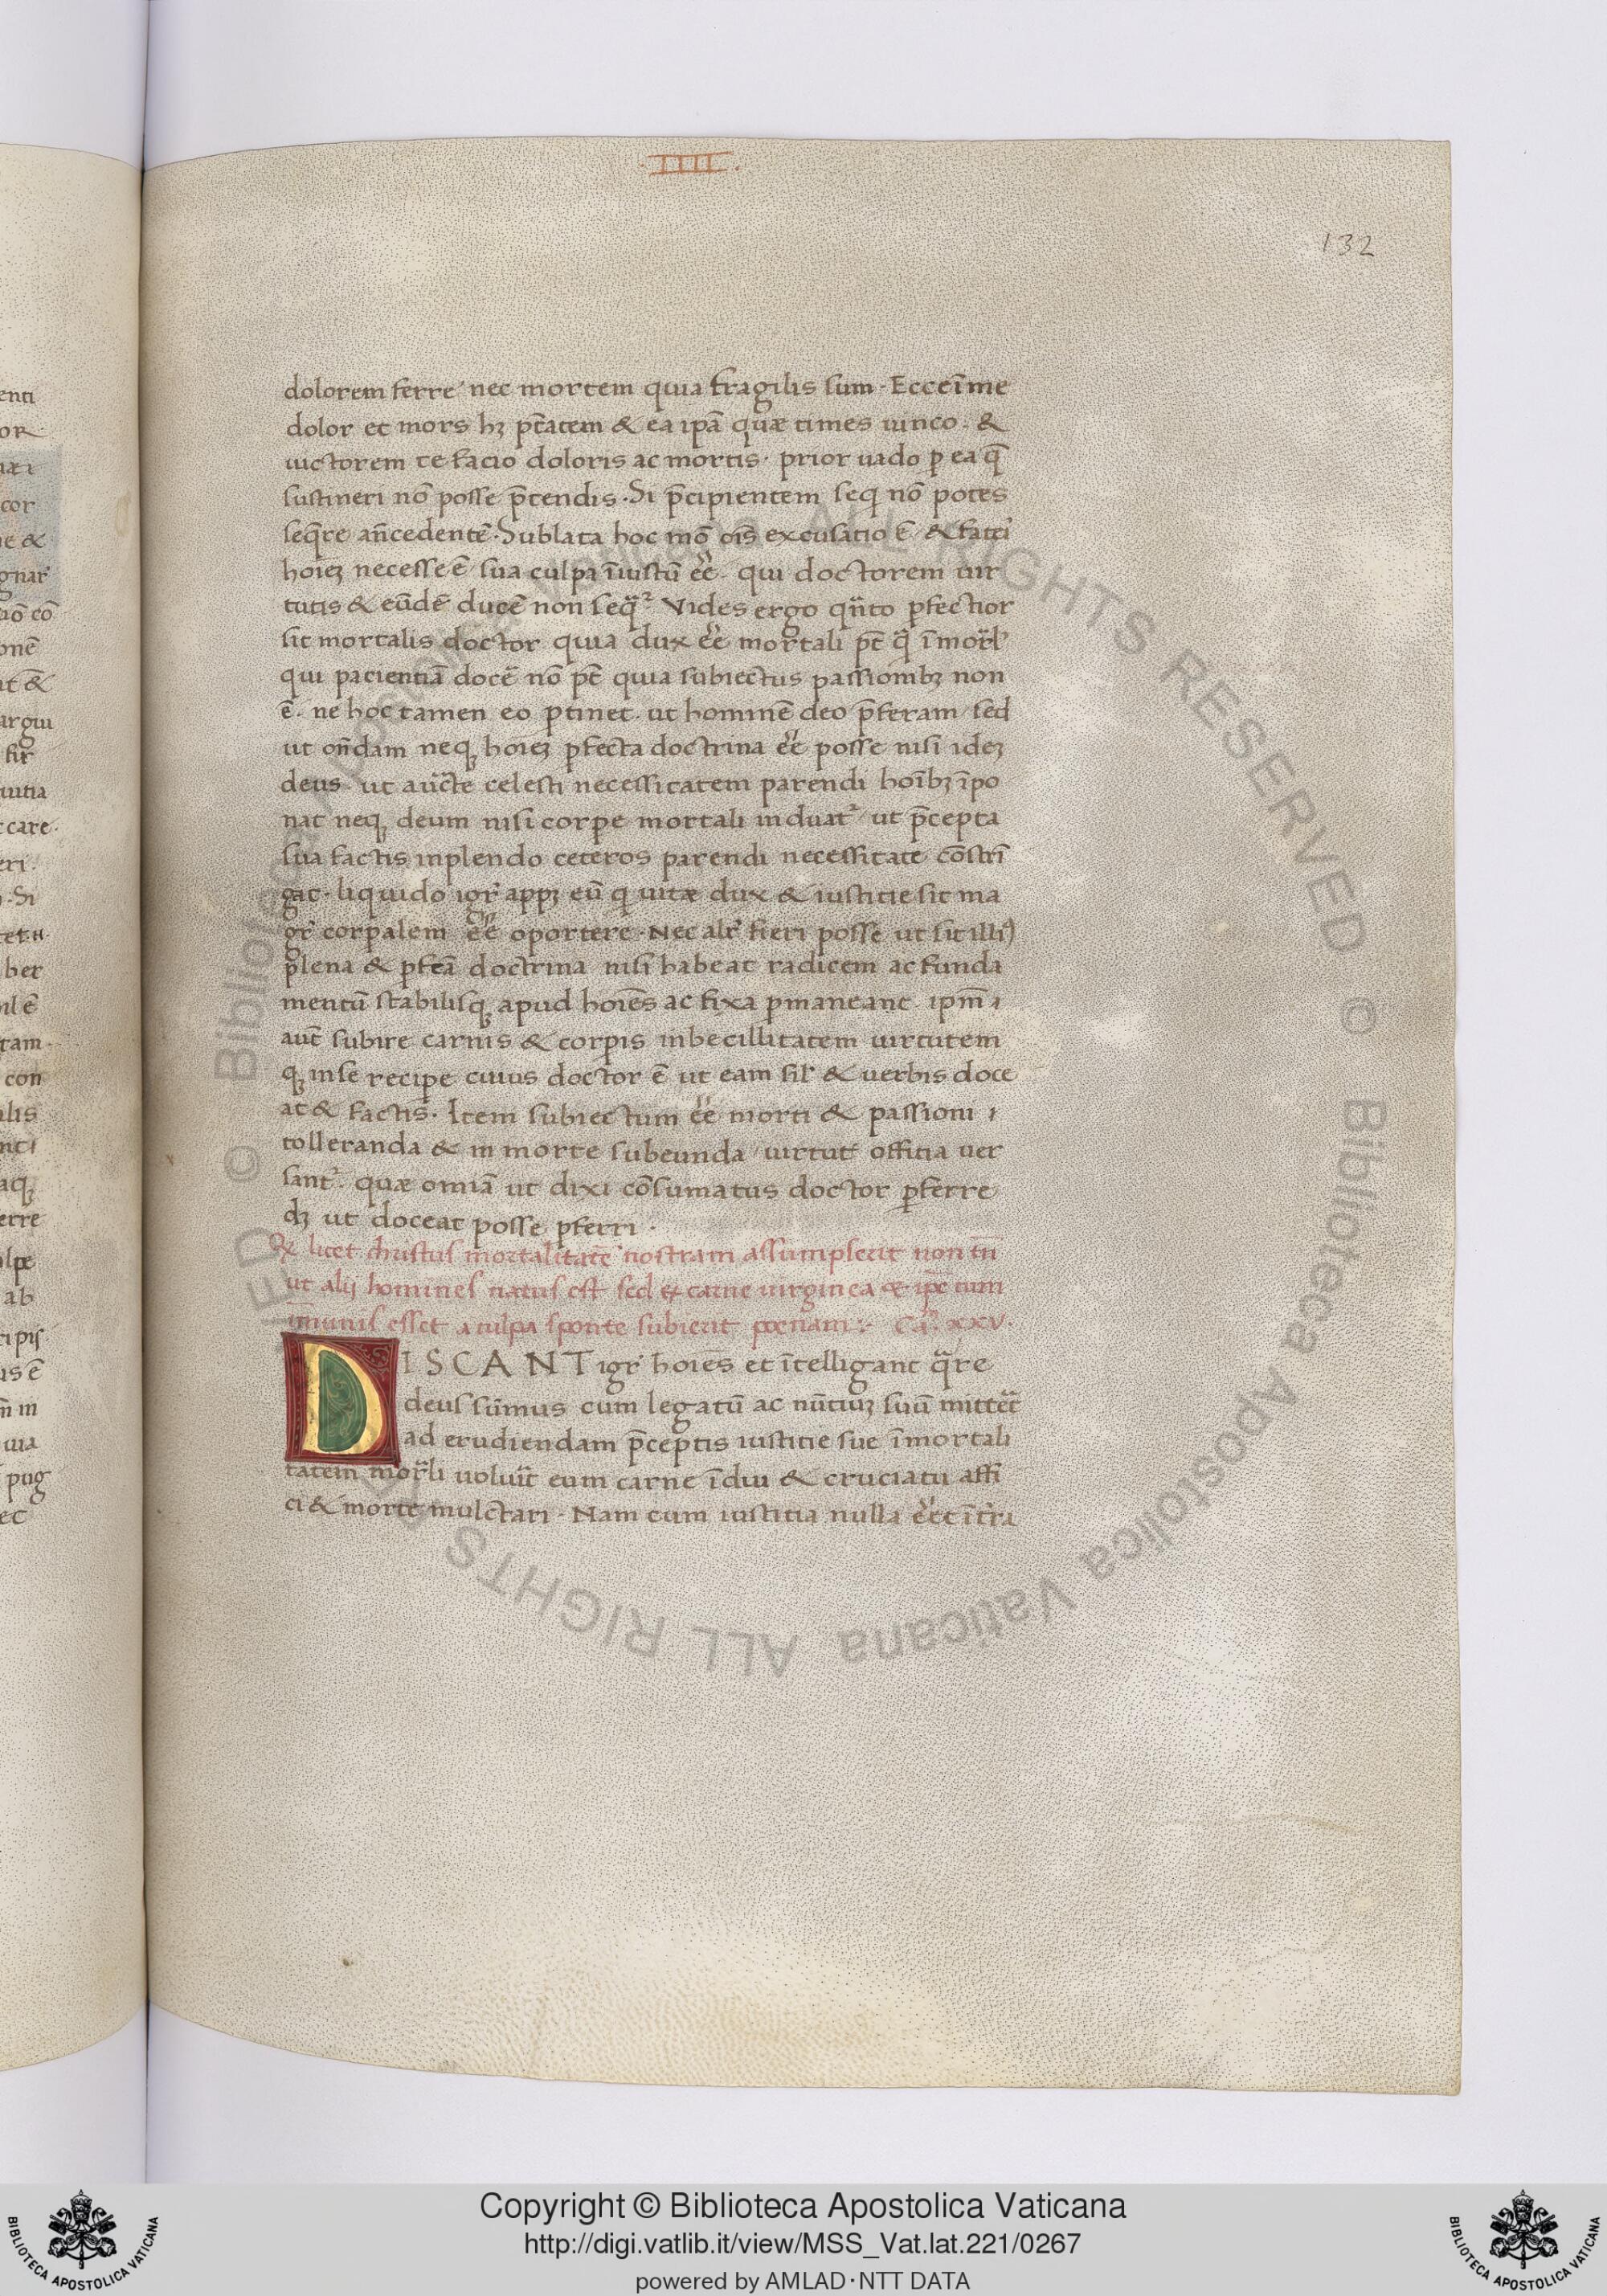 enti
or
uæ i
cor
ne &
gnar̄
aõ eõ
onē
it &
argui
fir
uitia
care.
eri.
. Si
ber
il ē
ram.
con
alis
nci
aq̨
erre
lpe
ab
us ē
m̄ in
uia
pug
ec
.IIII.
132
dolorem ferre nec mortem quia fragilis sum. Ecce ī me
dolor et mors hꝫ ptāatem & ea ipā quæ times uinco. &
uictorem te facio doloris ac mortis. prior uado ꝑ ea q̄
sustineri nō posse p̄tendis. Si p̄cipientem seq̨ nō potes
seq̄re an̄cedentē. Sublata hoc mō ois̄ excusatio ē & fateri
hoieꝫ necesse ē sua culpa īiustū eē qui doctorem uir
tutis & eūdē ducē non seq̄r. Vides ergo qn̄to ꝑfectior
sit mortalis doctor quia dux eē mortali pt̄ q̄ īmorl̄
qui pacientiā docē nō pt̄ quia subiectus passionibꝫ non
ē. ne hoc tamen eo ꝑtinet. ut hominē deo p̄feram sed
ut on̄dam neqꝫ hoieꝫ ꝑfecta doctrina eē posse nisi ideꝫ
deus. ut auc̄te celesti necessitatem parendi hoībꝫ īpo
nat neqꝫ deum nisi corꝑe mortali induat̄ ut p̄cepta
sua factis inplendo ceteros parendi necessitate cōstrī
gat. liquido igr̄ appꝫ eū q̨ uitæ dux & iustitie sit ma
gr̄ corꝑalem eē oportere. Nec alr̄ fieri posse ut sit illiꝰ
plena & ꝑfcā doctrina nisi habeat radicem ac funda
mentū stabilisqꝫ apud hoies̄ ac fixa ꝑmaneant ipm̄ i
aut̄ subire carnis & corꝑis inbecillitatem uirtutem
qꝫ in se reciꝑe cuius doctor ē ut eam sil̄ & uerbis doce
at & factis. Item subiectum eē morti & passioni i
tolleranda & in morte subeunda uirtut̄ offitia uer
sant̄. quæ omiā ut dixi cōsumatus doctor ꝑferre
dꝫ ut doceat posse ꝑferri.
Qꝫ licet christus mortalitatē nostram assumpserit non tn̄
ut alij homines natus est sed ex carne uirginea & ipē cum
īmunis esset a culpa sponte subierit pœnam:. Ca. xxv.
DISCANT igr̄ hoies̄ et ītelligant q̄re
deus sūmus cum legatū ac nūtiuꝫ suū mittēt
ad erudiendam p̄ceptis iustitie sue īmortali
tatem morl̄i uoluīt eum carne īdui & cruciatu affi
ci & morte mulctari. Nam cum iustitia nulla eēt ī tr̄a
© Biblioteca Apostolica Vaticana ALL RIGHTS RESERVED © Biblioteca Apostolica Vaticana ALL RIGHTS RESERVED
Copyright © Biblioteca Apostolica Vaticana
http://digi.vatlib.it/view/MSS_Vat.lat.221/0267
powered by AMLAD·NTT DATA
BIBLIOTECA APOSTOLICA VATICANA
BIBLIOTECA APOSTOLICA VATICANA